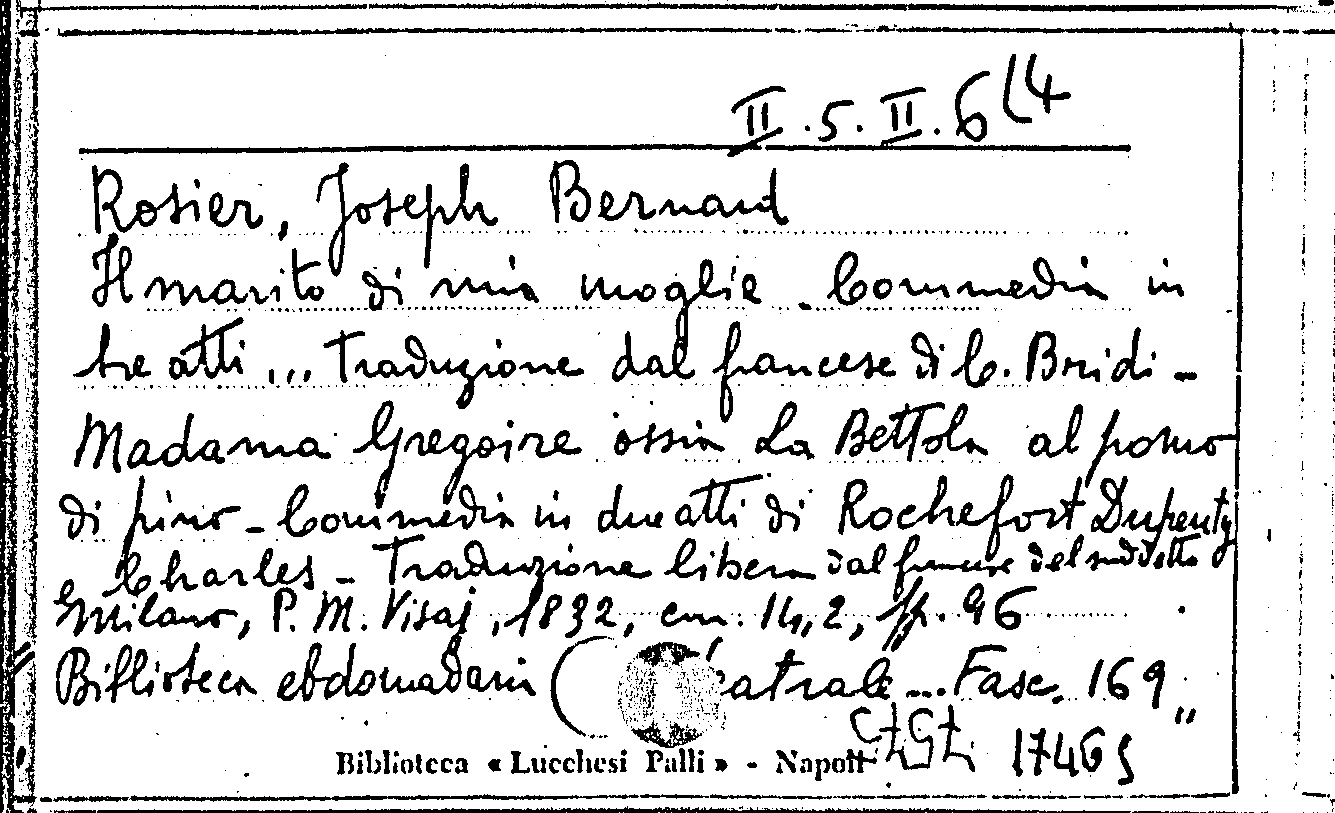 II.5.II.6(4
Rosier, Joseph Bernard
Il marito di mia moglie - Commedia in
tre atti ... Traduzione dal francese di C. Bridi -
Madama Gregoire ossia La Bettola al pomo
di pino - Commedia in due atti di Rochefort Dupeuty
e Charles - Traduzione libera dal francese del suddetto
Milano, P. M. Visaj, 1832, cm. 14,2, pp. 96
Biblioteca ebdomadaria teatrale ... Fasc. 169
Biblioteca « Lucchesi Palli » - Napoli
17465